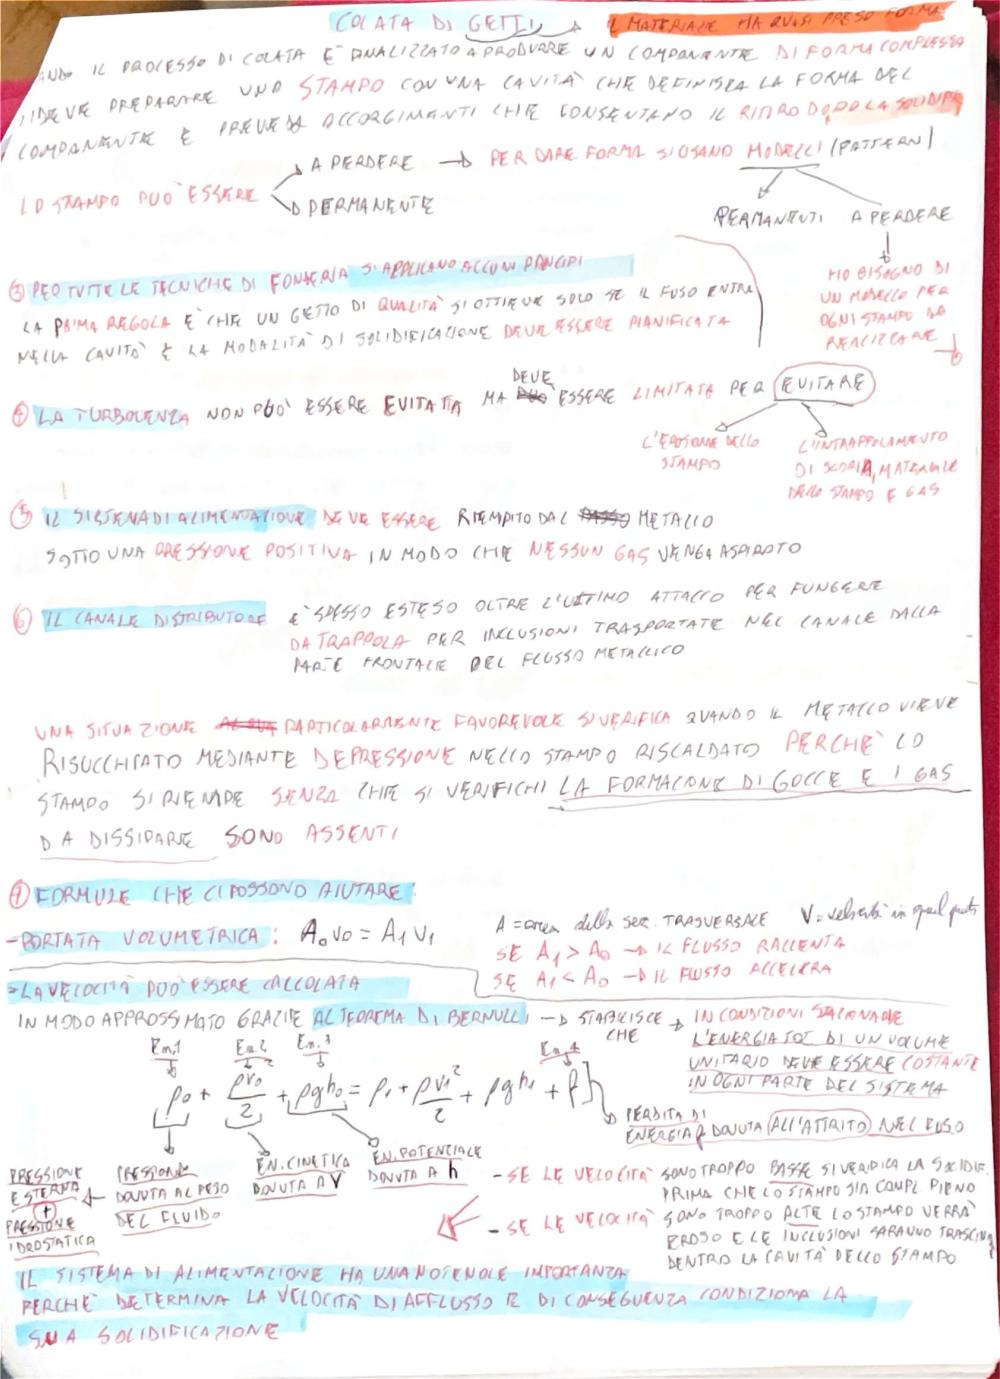 COLATA DI GETTI → IL MATERIALE HA QUASI PRESO FORMA
ANDO IL PROCESSO DI COLATA È FINALIZZATO A PRODURRE UN COMPONENTE DI FORMA COMPLESSA
SI DEVE PREPARARE UNO STAMPO CON UNA CAVITÀ CHE DEFINISCA LA FORMA DEL
COMPONENTE E PREVEDA ACCORGIMENTI CHE CONSENTANO IL RITIRO DOPO LA SOLIDIF
LO STAMPO PUÒ ESSERE
→ A PERDERE → PER DARE FORMA SI USANO MODELLI (PATTERN)
→ PERMANENTE
PERMANENTI A PERDERE
HO BISOGNO DI
UN MODELLO PER
OGNI STAMPO DA
REALIZZARE
③ PER TUTTE LE TECNICHE DI FONDERIA SI APPLICANO ALCUNI PRINCIPI
LA PRIMA REGOLA È CHE UN GETTO DI QUALITÀ SI OTTIENE SOLO SE IL FUSO ENTRA
NELLA CAVITÀ E LA MODALITÀ DI SOLIDIFICAZIONE DEVE ESSERE PIANIFICATA
④ LA TURBOLENZA NON PUÒ ESSERE EVITATA MA DEVE ESSERE LIMITATA PER EVITARE
L'EROSIONE DELLO
STAMPO
L'INTRAPPOLAMENTO
DI SCORIA, MATERIALE
DELLO STAMPO E GAS
⑤ IL SISTEMA DI ALIMENTAZIONE DEVE ESSERE RIEMPITO DAL METALLO
SOTTO UNA PRESSIONE POSITIVA IN MODO CHE NESSUN GAS VENGA ASPIRATO
⑥ IL CANALE DISTRIBUTORE È SPESSO ESTESO OLTRE L'ULTIMO ATTACCO PER FUNGERE
DA TRAPPOLA PER INCLUSIONI TRASPORTATE NEL CANALE DALLA
PARTE FRONTALE DEL FLUSSO METALLICO
UNA SITUAZIONE PARTICOLARMENTE FAVOREVOLE SI VERIFICA QUANDO IL METALLO VIENE
RISUCCHIATO MEDIANTE DEPRESSIONE NELLO STAMPO RISCALDATO PERCHÈ LO
STAMPO SI RIEMPIE SENZA CHE SI VERIFICHI LA FORMAZIONE DI GOCCE E I GAS
DA DISSIPARE SONO ASSENTI
⑨ FORMULE CHE CI POSSONO AIUTARE:
-PORTATA VOLUMETRICA: A₀V₀ = A₁V₁
A = area della sez. TRASVERSALE V = velocità in quel punto
SE A₁ > A₀ → IL FLUSSO RALLENTA
SE A₁ < A₀ → IL FLUSSO ACCELERA
- LA VELOCITÀ PUÒ ESSERE CALCOLATA
IN MODO APPROSSMATO GRAZIE AL TEOREMA DI BERNULLI → STABILISCE CHE → IN CONDIZIONI STAZIONARIE
L'ENERGIA TOT DI UN VOLUME
UNITARIO DEVE ESSERE COSTANTE
IN OGNI PARTE DEL SISTEMA
En.1 En.2 En.3 En.4
p₀ + ρv₀²/2 + ρgh₀ = p₁ + ρv₁²/2 + ρgh₁ + f
PERDITA DI
ENERGIA f DOVUTA ALL'ATTRITO NEL FUSO
PRESSIONE
ESTERNA
+
PRESSIONE
IDROSTATICA
PRESSIONE
DOVUTA AL PESO
DEL FLUIDO
EN. CINETICA
DOVUTA A V
EN. POTENZIALE
DOVUTA A h
- SE LE VELOCITÀ SONO TROPPO BASSE SI VERIFICA LA SOLIDIF.
PRIMA CHE LO STAMPO SIA COMPL PIENO
- SE LE VELOCITÀ SONO TROPPO ALTE LO STAMPO VERRÀ
EROSO E LE INCLUSIONI SARANNO TRASCIN
DENTRO LA CAVITÀ DELLO STAMPO
IL SISTEMA DI ALIMENTAZIONE HA UNA NOTEVOLE IMPORTANZA
PERCHÈ DETERMINA LA VELOCITÀ DI AFFLUSSO E DI CONSEGUENZA CONDIZIONA LA
SUA SOLIDIFICAZIONE